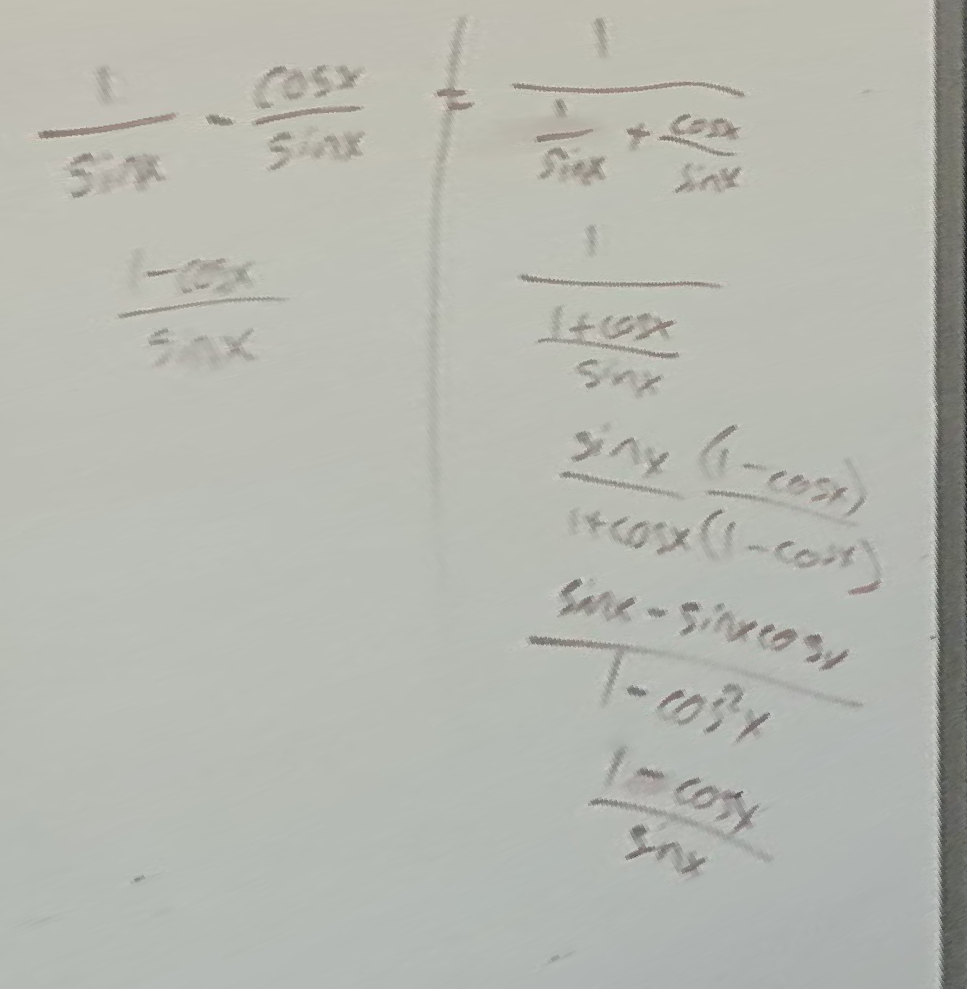 1/sinx - cosx/sinx = 1/(1/sinx + cosx/sinx)
1-cosx/sinx
1/(1+cosx/sinx)
sinx (1-cosx)
1+cosx(1-cosx)
sinx - sinxcosx
1-cos²x
1-cosx
sinx